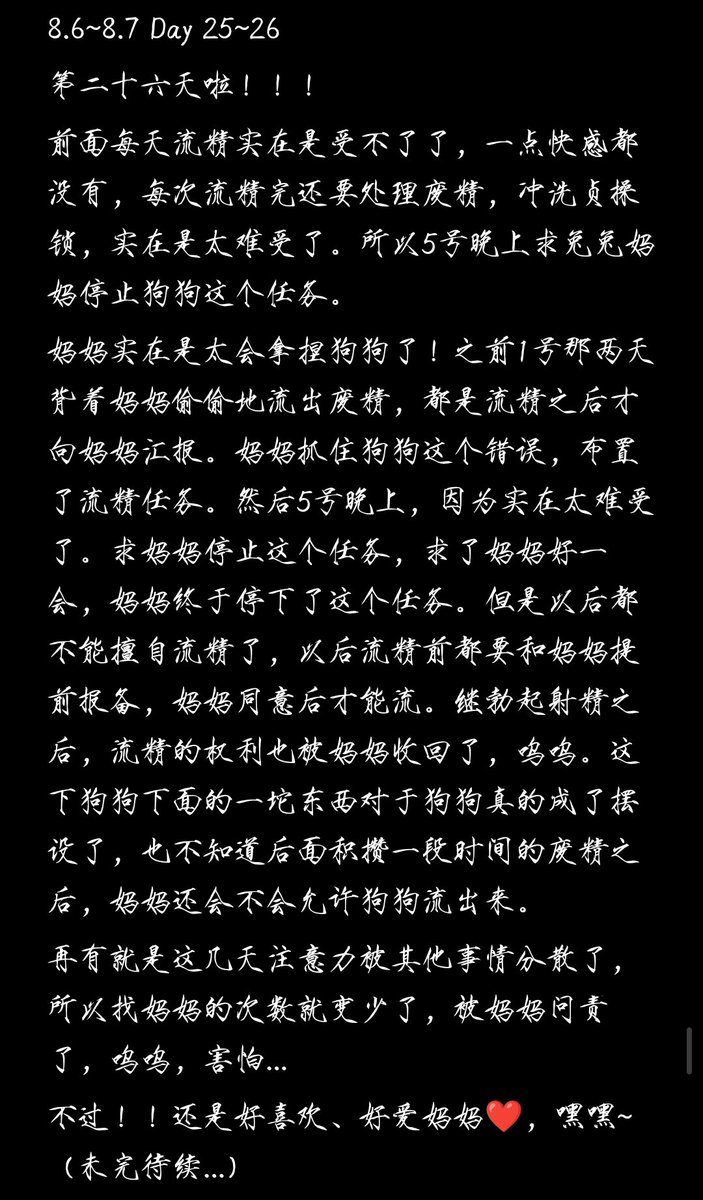 8.6~8.7 Day 25~26
第二十六天啦！！！
前面每天流精实在是受不了了，一点快感都
没有，每次流精完还要处理废精，冲洗贞操
锁，实在是太难受了。所以5号晚上求兔兔妈
妈停止狗狗这个任务。
妈妈实在是太会拿捏狗狗了！之前1号那两天
背着妈妈偷偷地流出废精，都是流精之后才
向妈妈汇报。妈妈抓住狗狗这个错误，布置
了流精任务。然后5号晚上，因为实在太难受
了。求妈妈停止这个任务，求了妈妈好一
会，妈妈终于停下了这个任务。但是以后都
不能擅自流精了，以后流精前都要和妈妈提
前报备，妈妈同意后才能流。继勃起射精之
后，流精的权利也被妈妈收回了，呜呜。这
下狗狗下面的一坨东西对于狗狗真的成了摆
设了，也不知道后面积攒一段时间的废精之
后，妈妈还会不会允许狗狗流出来。
再有就是这几天注意力被其他事情分散了，
所以找妈妈的次数就变少了，被妈妈问责
了，呜呜，害怕...
不过！！还是好喜欢、好爱妈妈❤️，嘿嘿~
（未完待续...）